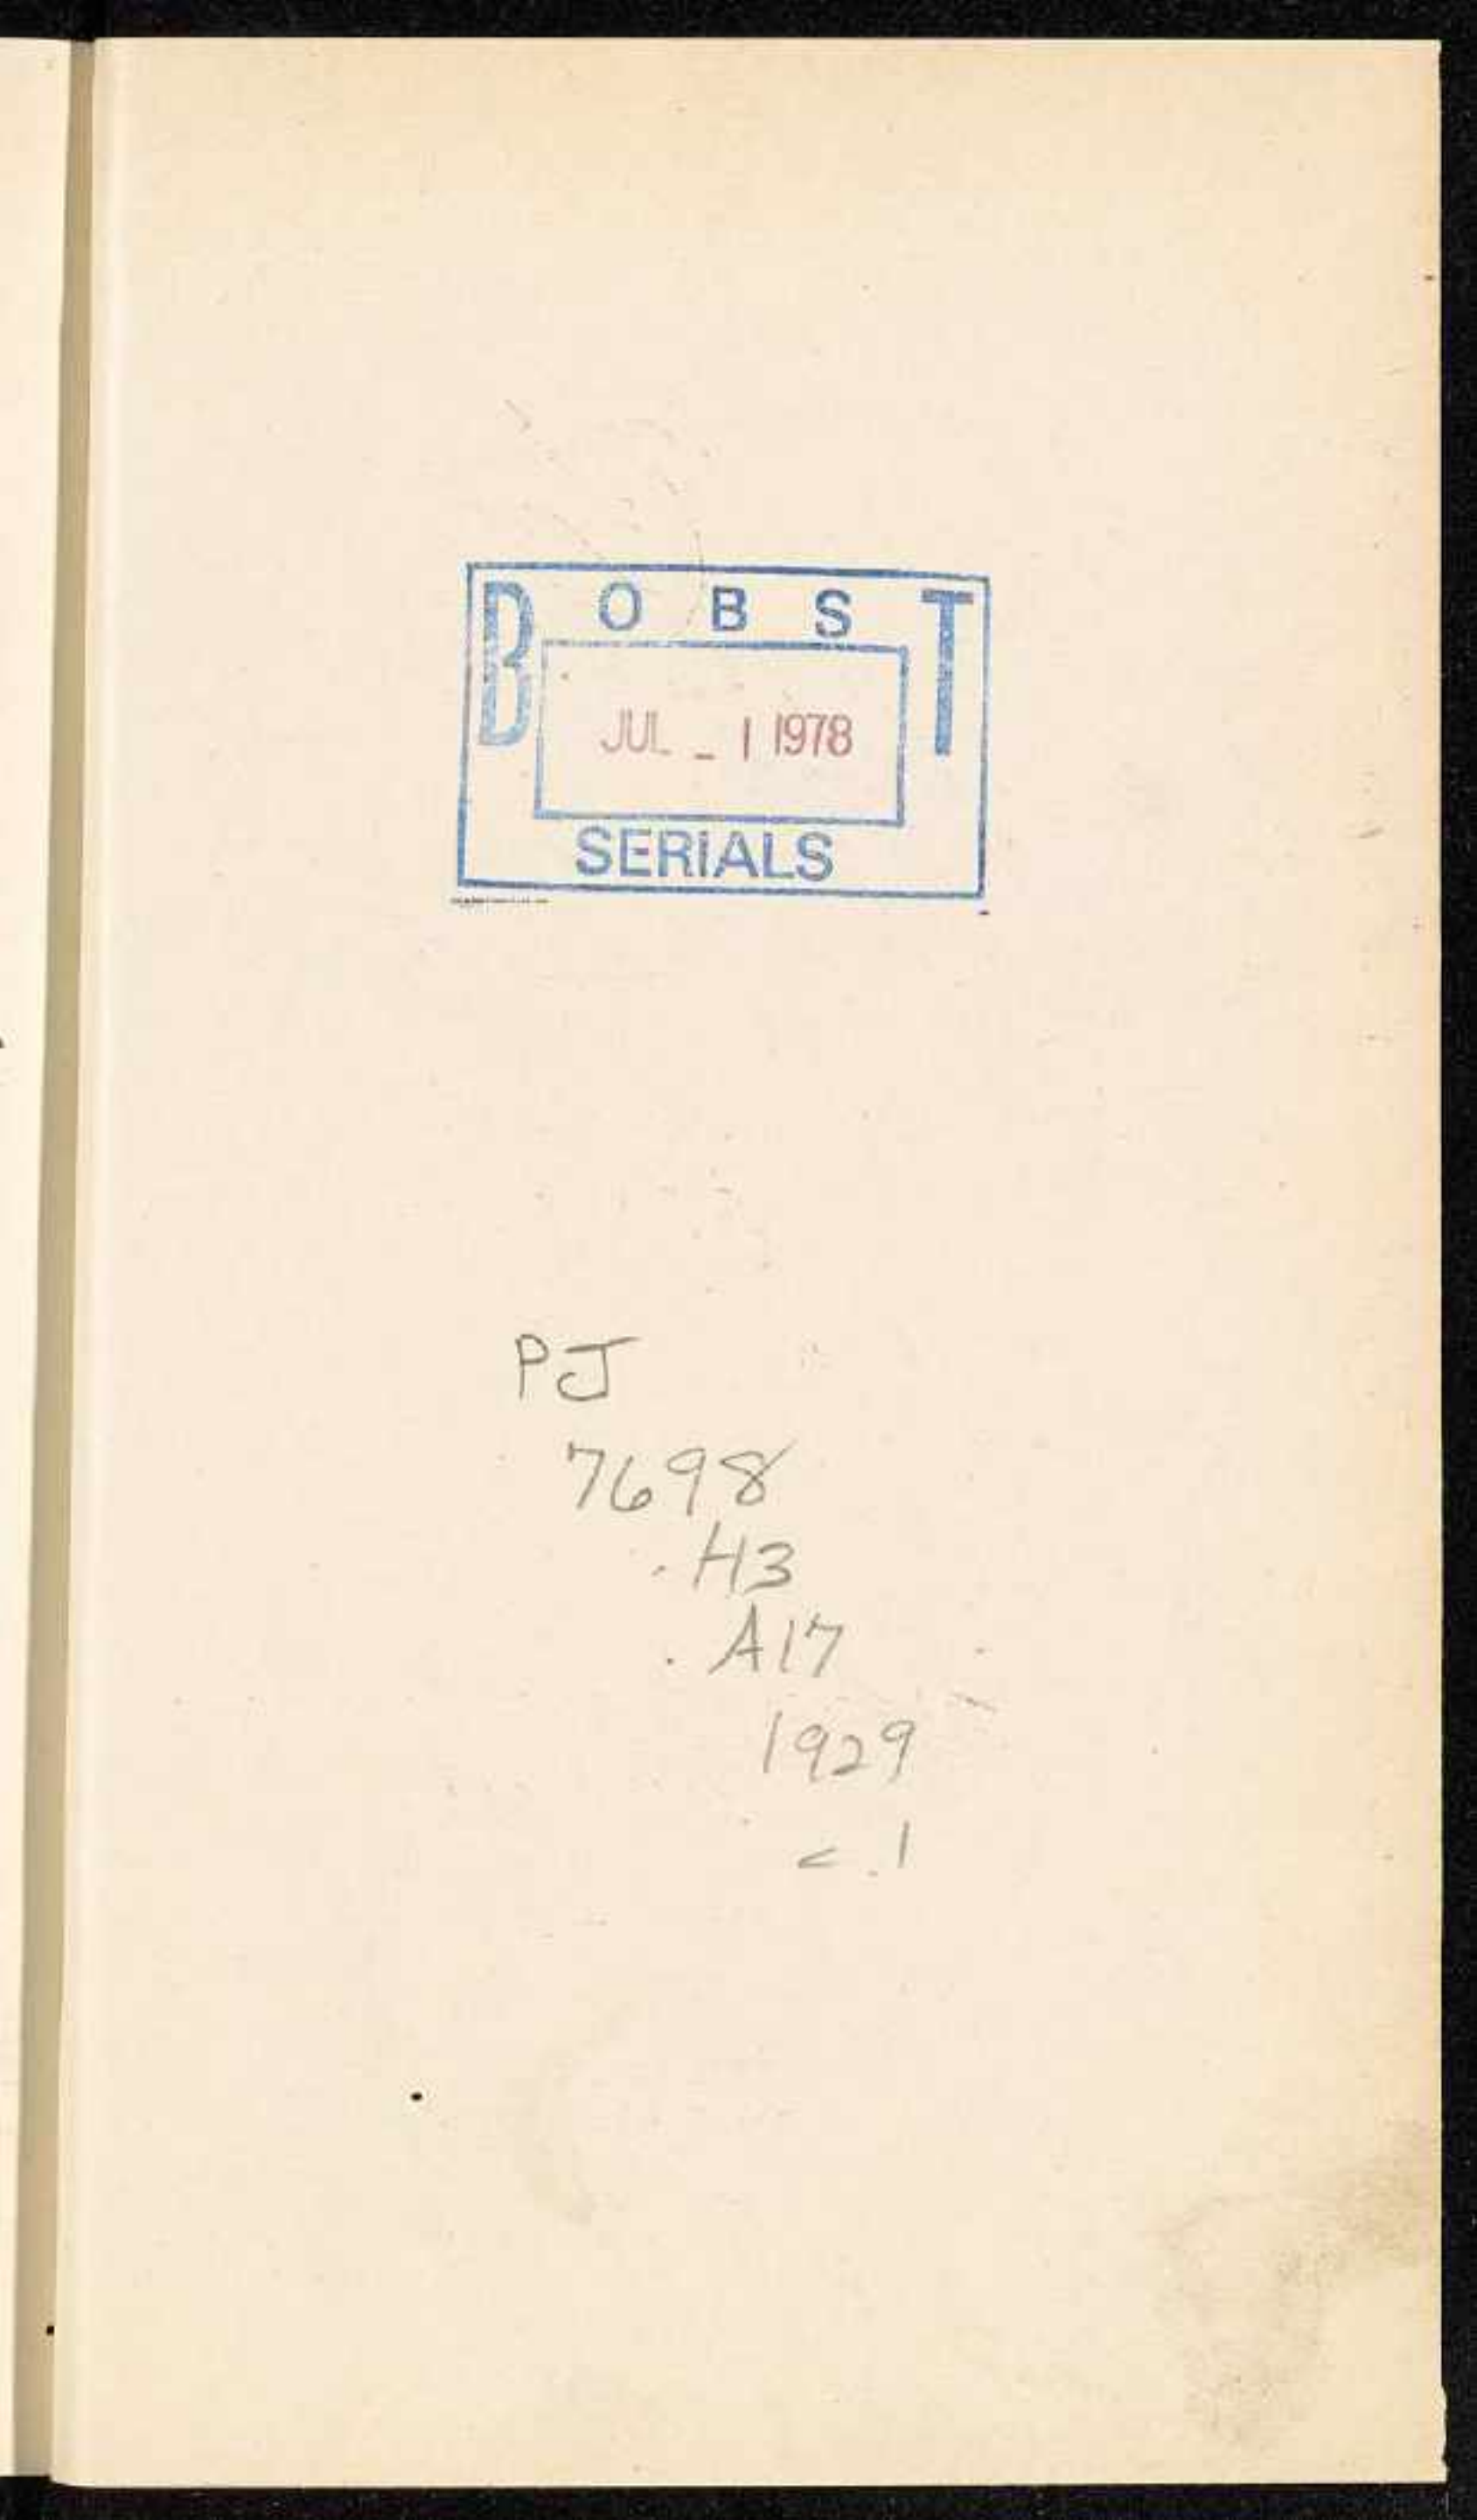 BOBST
JUL - 1 1978
SERIALS
PJ
7698
.H3
.A17
1929
c.1